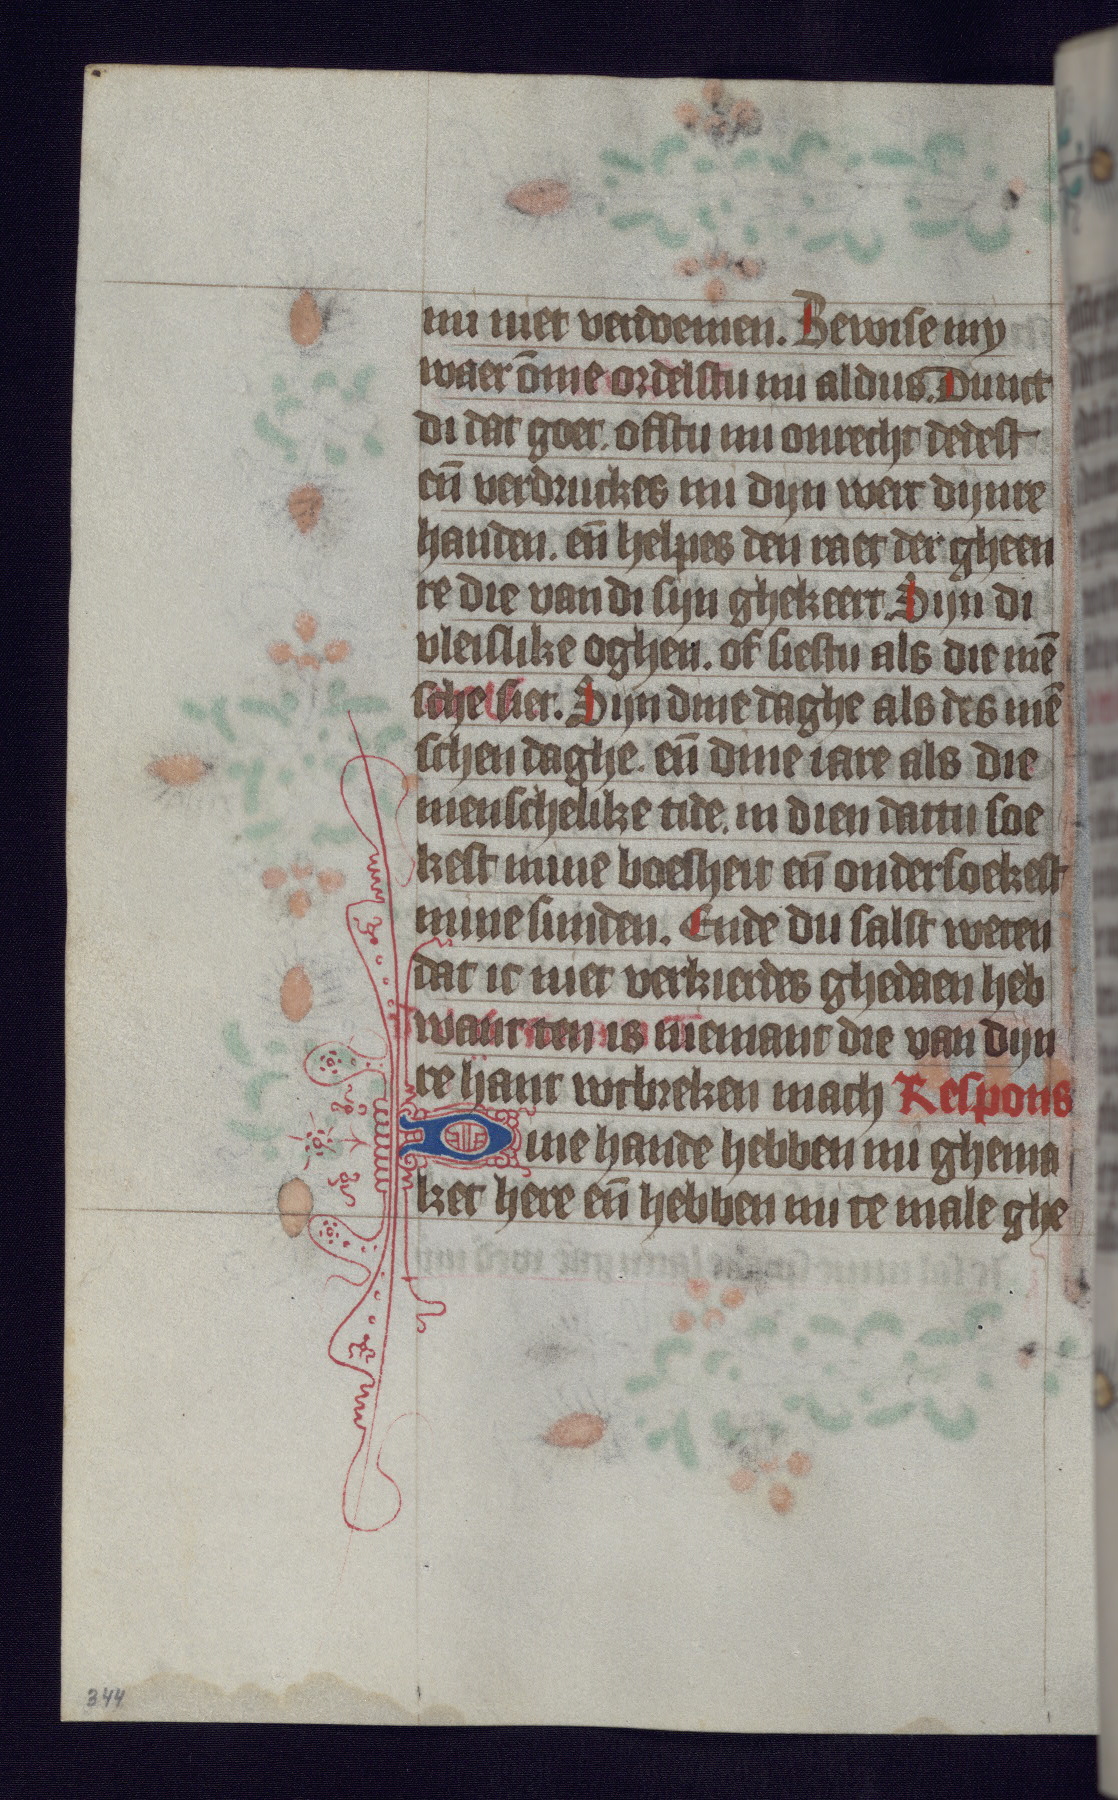 mi niet verdoemen. Bewise my
waer o̅me ordelstu mi aldus. Dunct
di dat goet. ofstu mi onrecht dedest
en̅ verdruckes mi dijn werc dijnre
handen. en̅ helpes den raet der gheen
re die van di sijn ghekeert. Sijn di
vleislike oghen. of siestu als die me̅
sche siet. Sijn dine daghe als des me̅
schen daghe. en̅ dine iare als die
menschelike tide. in dien dattu soe
kest mine boesheit en̅ ondersoekest
mine sunden. Ende du salst weten
dat ic niet verkierdes ghedaen heb
want ten is niemant die van dijn
re hant wtbreken mach Respons
Dine hande hebben mi ghema
ket here en̅ hebben mi te male ghe
344